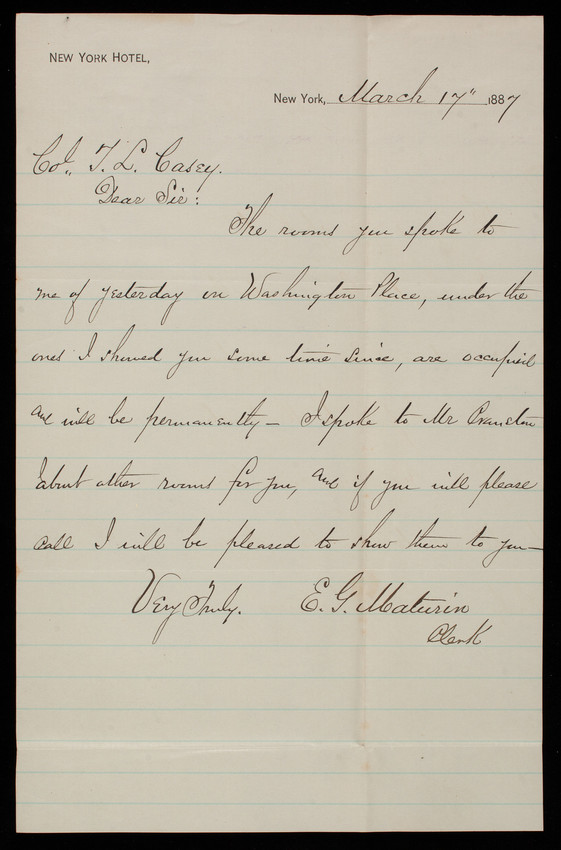 New York Hotel,
New York, March 17" 1887
Col. T. L. Casey.
Dear Sir:
The rooms you spoke to
me of yesterday on Washington Place, under the
ones I showed you some time since, are occupied
and will be permanently — I spoke to Mr Cranston
about other rooms for you, and if you will please
call I will be pleased to show them to you —
Very Truly. E. G. Maturin
Clerk